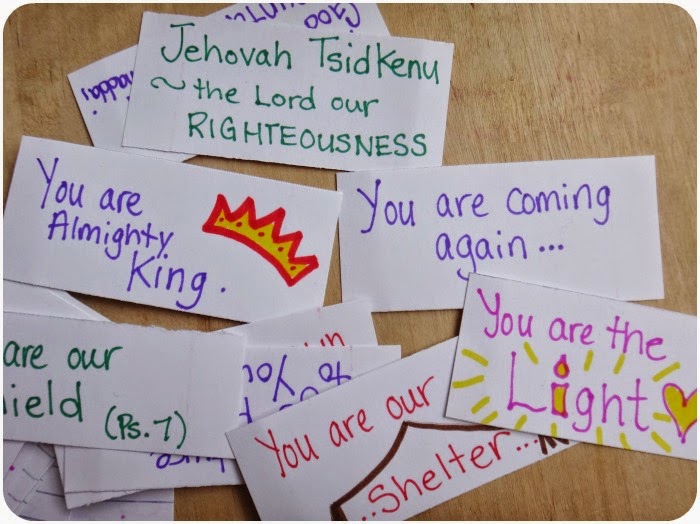 Jehovah Tsidkenu
~ the Lord our
RIGHTEOUSNESS
You are
Almighty
King.
You are coming
again...
You are the
Light
are our
ield (Ps. 7)
You are our
...Shelter...